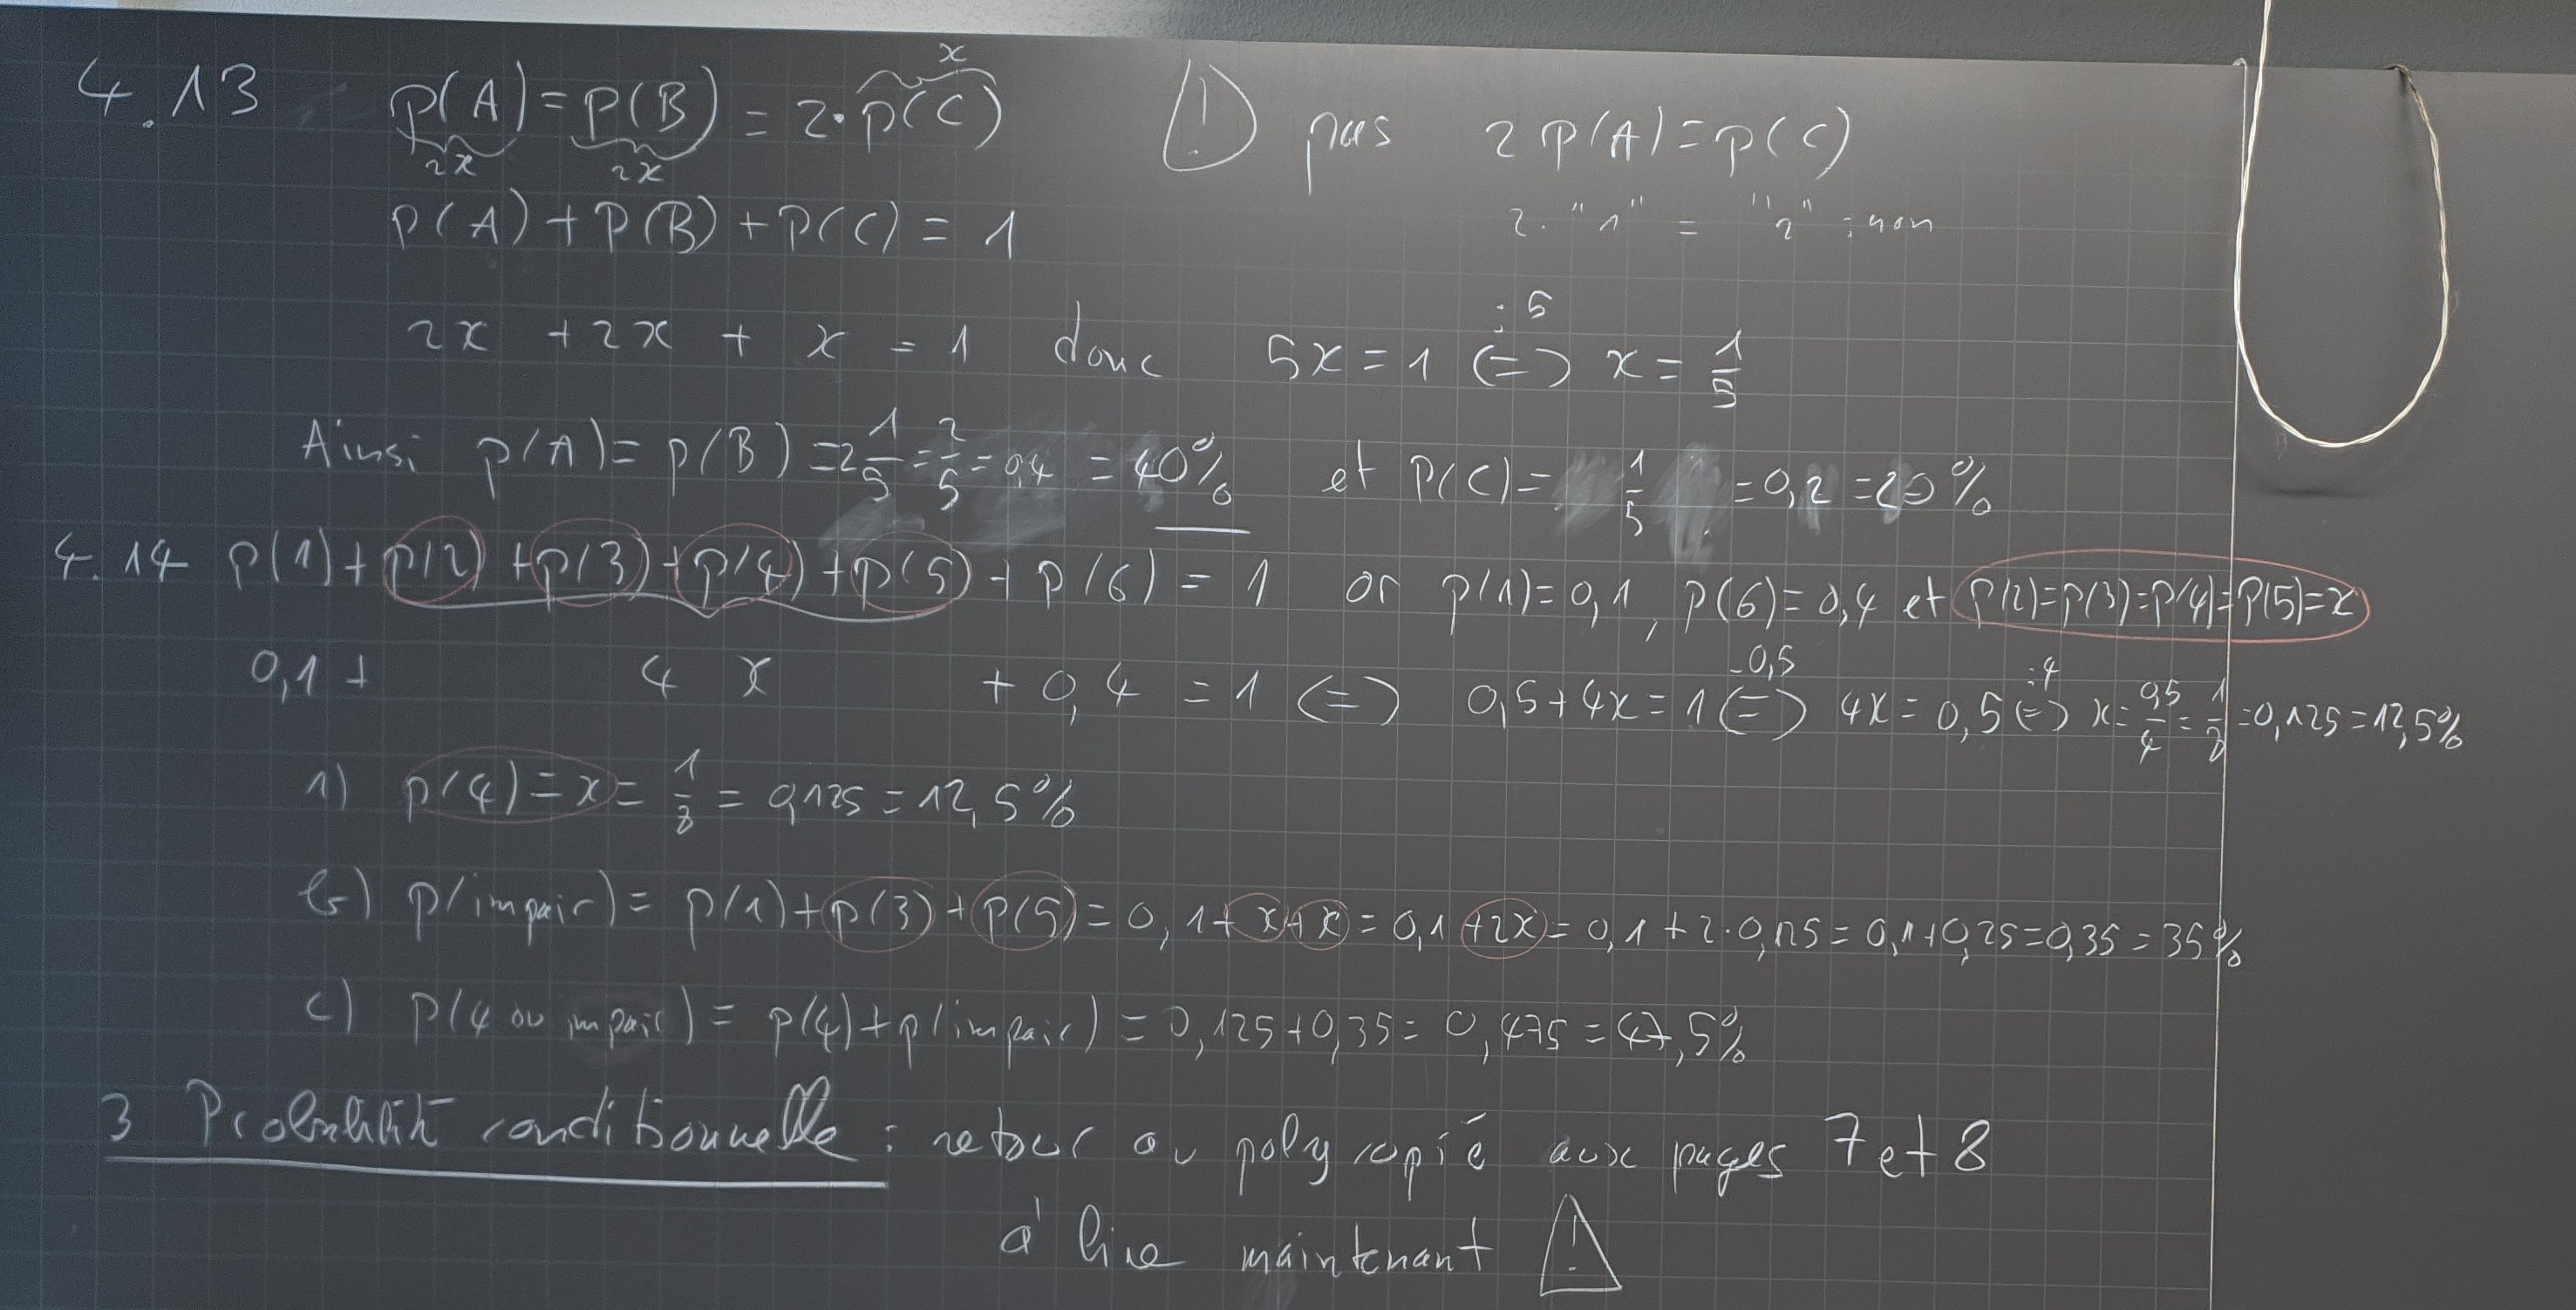 4.13 p(A) = p(B) = 2·p(C) ⚠ pas 2 p(A) = p(C)
x
2x 2x
2. "1" = "2" : non
p(A) + p(B) + p(C) = 1
2x + 2x + x = 1 donc 5x = 1 (=) x = 1/5
:5
Ainsi p(A) = p(B) = 2 1/5 = 2/5 = 0,4 = 40% et p(C) = 1/5 = 0,2 = 20%
4.14 p(1) + p(2) + p(3) + p(4) + p(5) + p(6) = 1 or p(1) = 0,1, p(6) = 0,4 et p(2) = p(3) = p(4) = p(5) = x
0,1 + 4x + 0,4 = 1 (=) 0,5 + 4x = 1 (=) 4x = 0,5 (=) x = 0,5/4 = 1/8 = 0,125 = 12,5%
-0,5 :4
1) p(4) = x = 1/8 = 0,125 = 12,5%
b) p(impair) = p(1) + p(3) + p(5) = 0,1 + x + x = 0,1 + 2x = 0,1 + 2·0,125 = 0,1 + 0,25 = 0,35 = 35%
c) p(4 ou impair) = p(4) + p(impair) = 0,125 + 0,35 = 0,475 = 47,5%
3 Probabilité conditionnelle : retour au polycopié aux pages 7 et 8
à lire maintenant ⚠